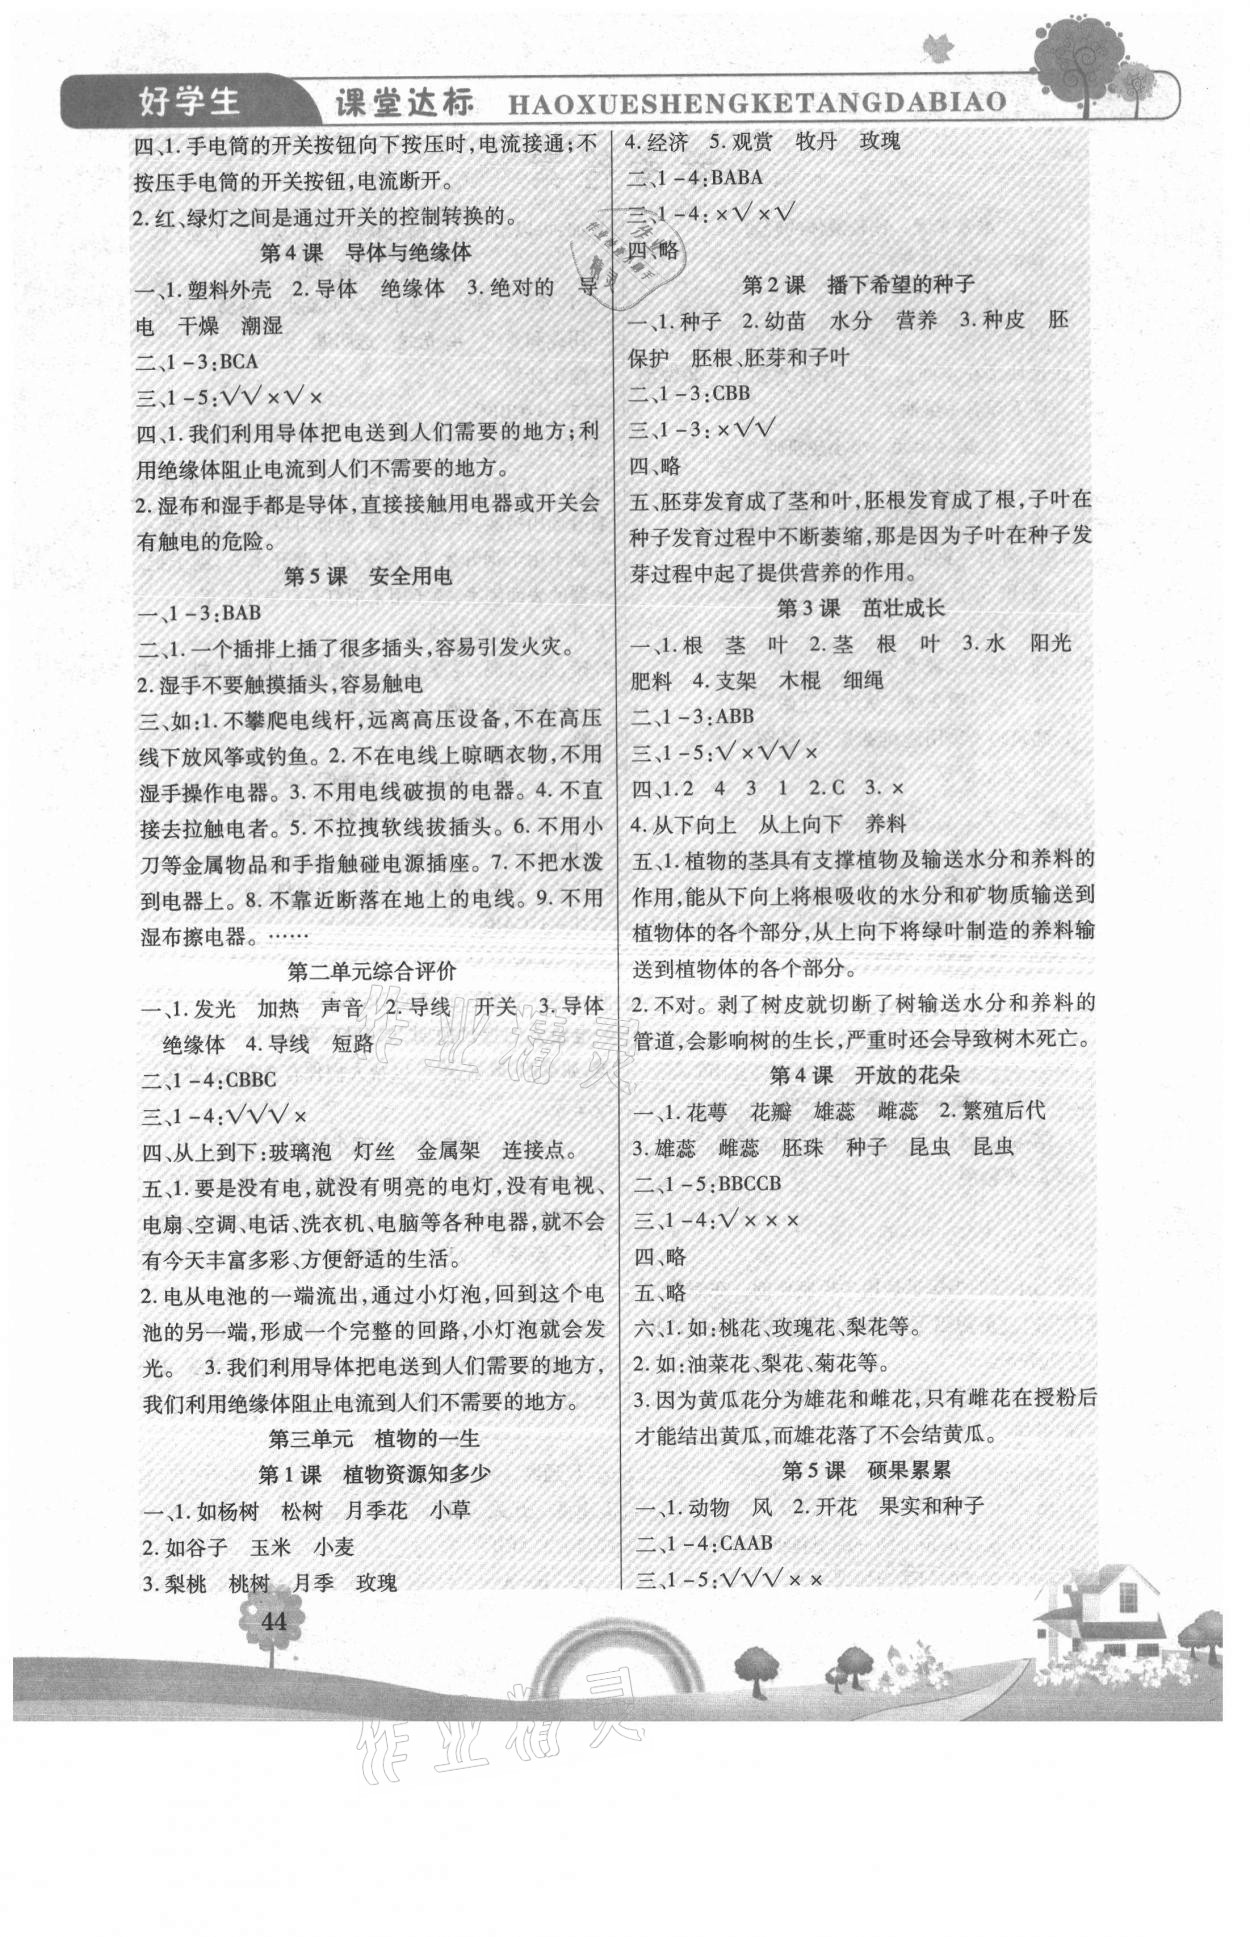 好学生 课堂达标 HAOXUESHENGKETANGDABIAO
四、1. 手电筒的开关按钮向下按压时,电流接通;不
按压手电筒的开关按钮,电流断开。
2. 红、绿灯之间是通过开关的控制转换的。
第 4 课 导体与绝缘体
一、1. 塑料外壳 2. 导体 绝缘体 3. 绝对的 导
电 干燥 潮湿
二、1－3:BCA
三、1－5:√√×√×
四、1. 我们利用导体把电送到人们需要的地方;利
用绝缘体阻止电流到人们不需要的地方。
2. 湿布和湿手都是导体,直接接触用电器或开关会
有触电的危险。
第 5 课 安全用电
一、1－3:BAB
二、1. 一个插排上插了很多插头,容易引发火灾。
2. 湿手不要触摸插头,容易触电
三、如:1. 不攀爬电线杆,远离高压设备,不在高压
线下放风筝或钓鱼。2. 不在电线上晾晒衣物,不用
湿手操作电器。3. 不用电线破损的电器。4. 不直
接去拉触电者。5. 不拉拽软线拔插头。6. 不用小
刀等金属物品和手指触碰电源插座。7. 不把水泼
到电器上。8. 不靠近断落在地上的电线。9. 不用
湿布擦电器。……
第二单元综合评价
一、1. 发光 加热 声音 2. 导线 开关 3. 导体
绝缘体 4. 导线 短路
二、1－4:CBBC
三、1－4:√√√×
四、从上到下:玻璃泡 灯丝 金属架 连接点。
五、1. 要是没有电,就没有明亮的电灯,没有电视、
电扇、空调、电话、洗衣机、电脑等各种电器,就不会
有今天丰富多彩、方便舒适的生活。
2. 电从电池的一端流出,通过小灯泡,回到这个电
池的另一端,形成一个完整的回路,小灯泡就会发
光。 3. 我们利用导体把电送到人们需要的地方,
我们利用绝缘体阻止电流到人们不需要的地方。
第三单元 植物的一生
第 1 课 植物资源知多少
一、1. 如杨树 松树 月季花 小草
2. 如谷子 玉米 小麦
3. 梨桃 桃树 月季 玫瑰
4. 经济 5. 观赏 牡丹 玫瑰
二、1－4:BABA
三、1－4:×√×√
四、略
第 2 课 播下希望的种子
一、1. 种子 2. 幼苗 水分 营养 3. 种皮 胚
保护 胚根、胚芽和子叶
二、1－3:CBB
三、1－3:×√√
四、略
五、胚芽发育成了茎和叶,胚根发育成了根,子叶在
种子发育过程中不断萎缩,那是因为子叶在种子发
芽过程中起了提供营养的作用。
第 3 课 茁壮成长
一、1. 根 茎 叶 2. 茎 根 叶 3. 水 阳光
肥料 4. 支架 木棍 细绳
二、1－3:ABB
三、1－5:√×√√×
四、1. 2 4 3 1 2. C 3. ×
4. 从下向上 从上向下 养料
五、1. 植物的茎具有支撑植物及输送水分和养料的
作用,能从下向上将根吸收的水分和矿物质输送到
植物体的各个部分,从上向下将绿叶制造的养料输
送到植物体的各个部分。
2. 不对。剥了树皮就切断了树输送水分和养料的
管道,会影响树的生长,严重时还会导致树木死亡。
第 4 课 开放的花朵
一、1. 花萼 花瓣 雄蕊 雌蕊 2. 繁殖后代
3. 雄蕊 雌蕊 胚珠 种子 昆虫 昆虫
二、1－5:BBCCB
三、1－4:√×××
四、略
五、略
六、1. 如:桃花、玫瑰花、梨花等。
2. 如:油菜花、梨花、菊花等。
3. 因为黄瓜花分为雄花和雌花,只有雌花在授粉后
才能结出黄瓜,而雄花落了不会结黄瓜。
第 5 课 硕果累累
一、1. 动物 风 2. 开花 果实和种子
二、1－4:CAAB
三、1－5:√√√××
44
作业精灵
作业精灵